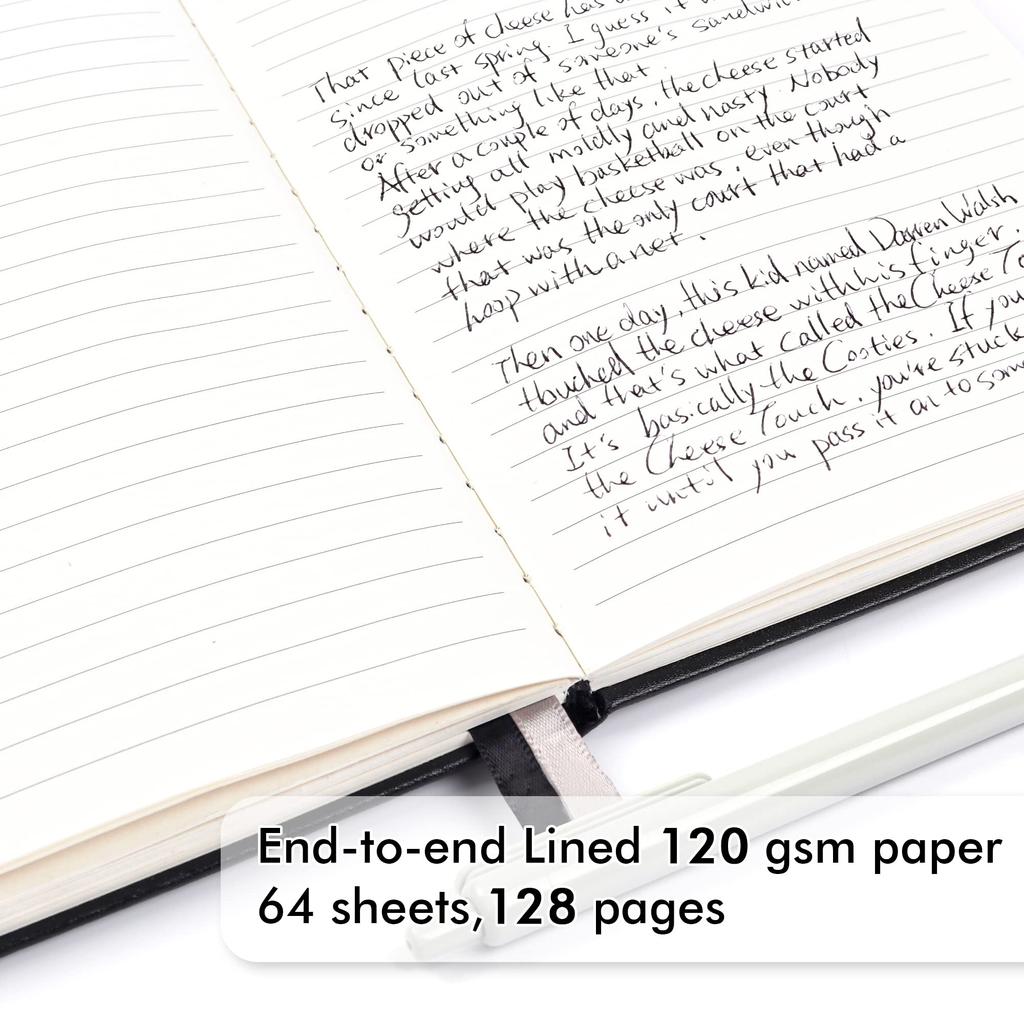 That piece of cheese has
since last spring. I guess it
dropped out of someone's sandwich
or something like that.
After a couple of days, the cheese started
getting all moldly and nasty. Nobody
would play basketball on the court
where the cheese was, even though
that was the only court that had a
hoop with a net.
Then one day, this kid named Darren Walsh
thuched the cheese with his finger.
and that's what called the Cheese To
It's basically the Cooties. If you
the Cheese Touch, you're stuck
it until you pass it on to some
End-to-end Lined 120 gsm paper
64 sheets,128 pages